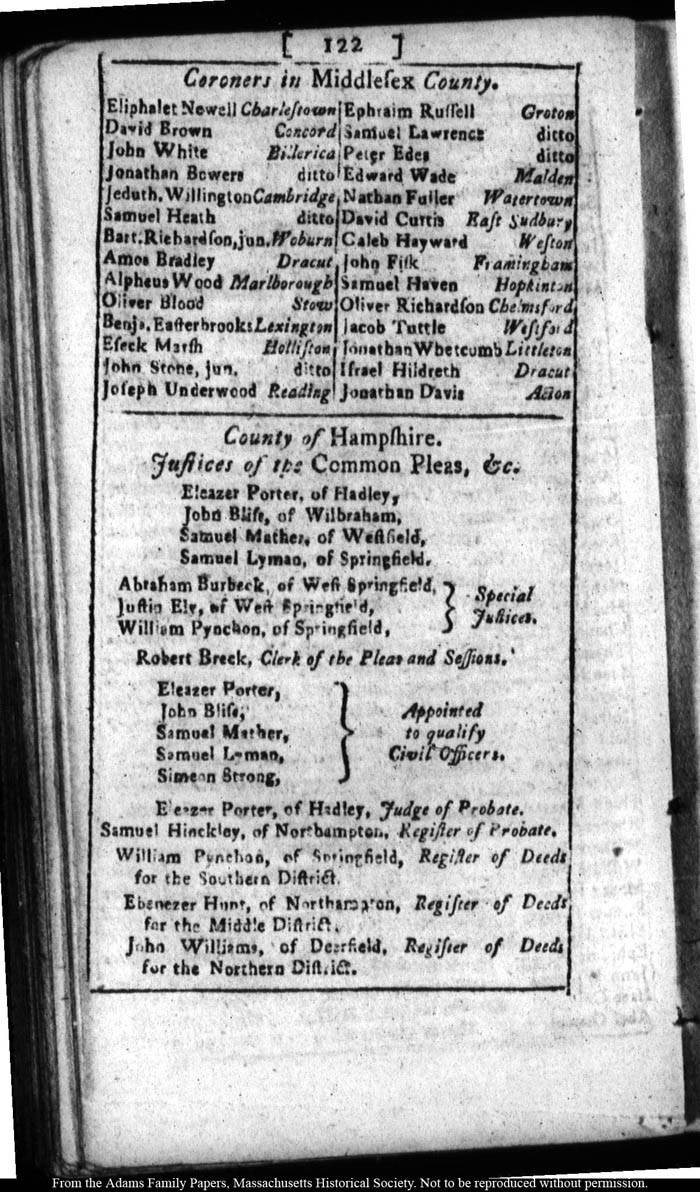 [ 122 ]
Coroners in Middleſex County.
Eliphalet Newell Charleſtown Ephraim Ruſſell Groton
David Brown Concord Samuel Lawrence ditto
John White Billerica Peter Edes ditto
Jonathan Bowers ditto Edward Wade Malden
Jeduth. Willington Cambridge Nathan Fuller Watertown
Samuel Heath ditto David Curtis Eaſt Sudbury
Bart. Richardſon, jun. Woburn Caleb Hayward Weſton
Amos Bradley Dracut John Fiſk Framingham
Alpheus Wood Marlborough Samuel Haven Hopkinton
Oliver Blood Stow Oliver Richardſon Chelmsford
Benja. Eaſterbrooks Lexington Jacob Tuttle Weſtford
Eſeck Marſh Holliſton Jonathan Whetcumb Littleton
John Stone, jun. ditto Iſrael Hildreth Dracut
Joſeph Underwood Reading Jonathan Davis Acton
County of Hampſhire.
Juſtices of the Common Pleas, &c.
Eleazer Porter, of Hadley,
John Bliſs, of Wilbraham,
Samuel Mather, of Weſtfield,
Samuel Lyman, of Springfield.
Abraham Burbeck, of Weſt Springfield,
Juſtin Ely, of Weſt Springfield,
William Pynchon, of Springfield,
Special
Juſtices.
Robert Breck, Clerk of the Pleas and Seſſions.
Eleazer Porter,
John Bliſs,
Samuel Mather,
Samuel Lyman,
Simeon Strong,
Appointed
to qualify
Civil Officers.
Eleazer Porter, of Hadley, Judge of Probate.
Samuel Hinckley, of Northampton, Regiſter of Probate.
William Pynchon, of Springfield, Regiſter of Deeds
for the Southern Diſtrict.
Ebenezer Hunt, of Northampton, Regiſter of Deeds
for the Middle Diſtrict.
John Williams, of Deerfield, Regiſter of Deeds
for the Northern Diſtrict.
From the Adams Family Papers, Massachusetts Historical Society. Not to be reproduced without permission.